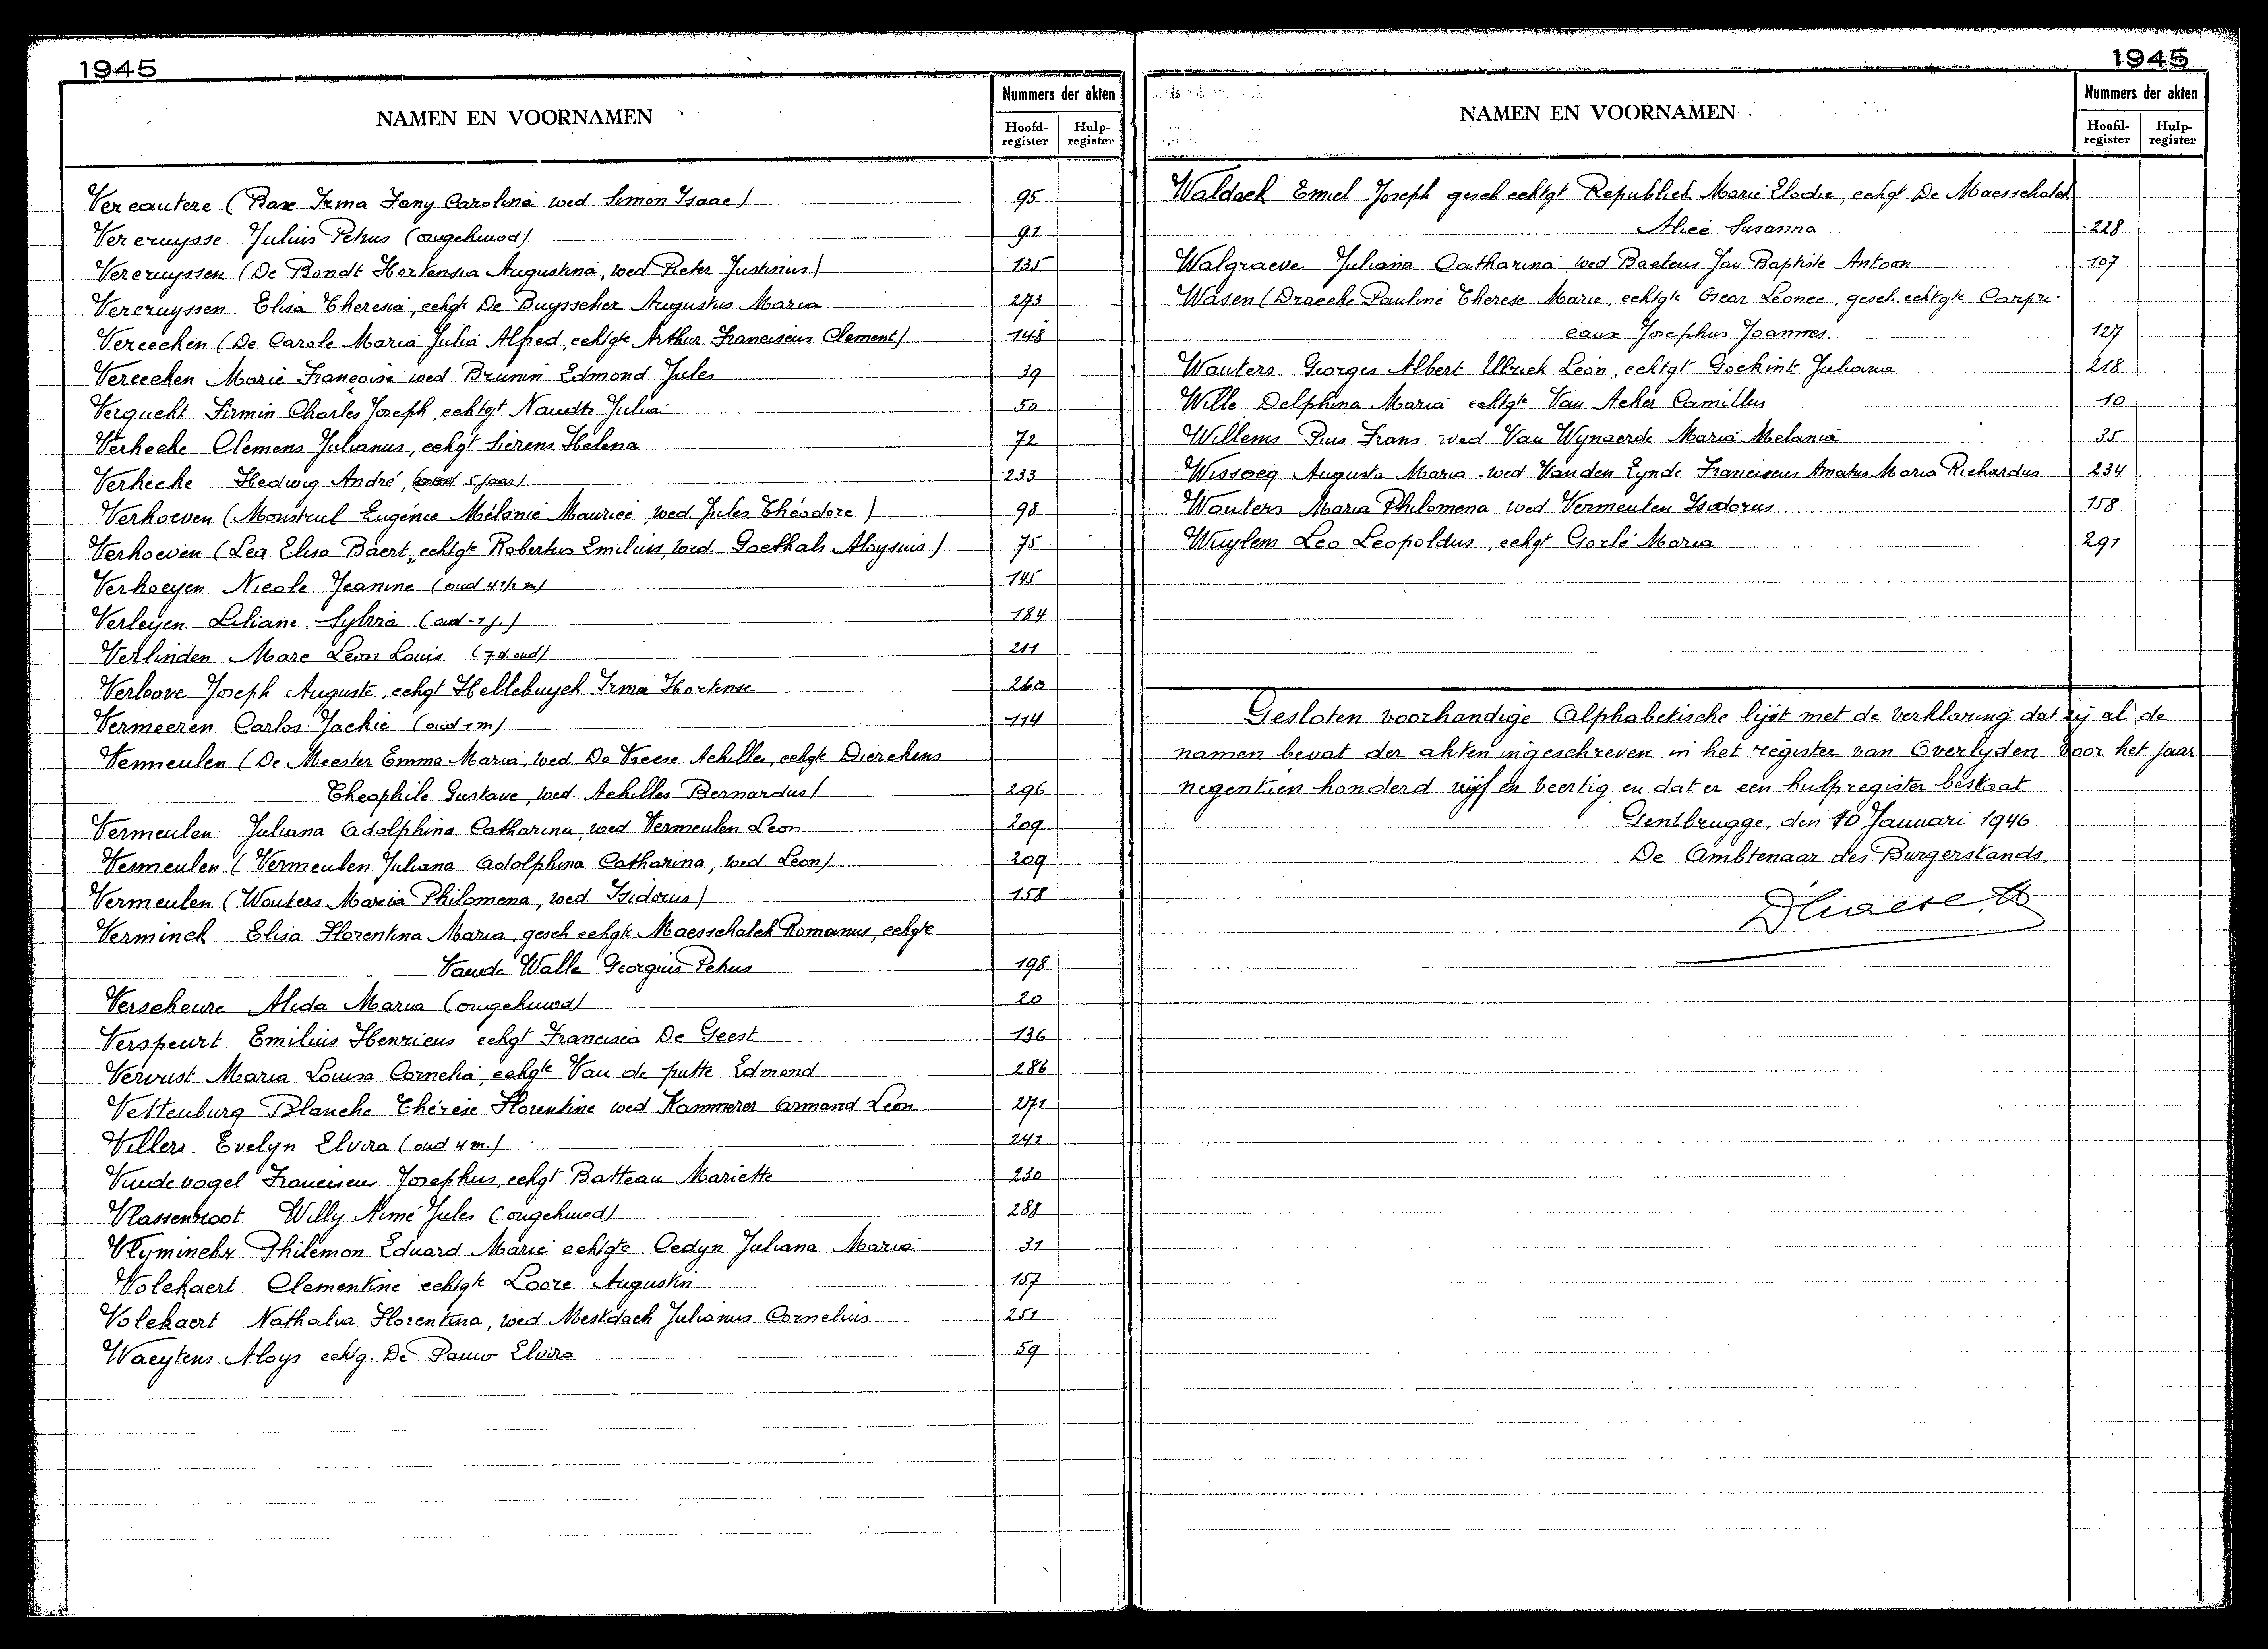 1945
NAMEN EN VOORNAMEN
Nummers der akten
Hoofd-register
Hulp-register
Vercautere (Bax Irma Fany Carolina wed Simon Isaac) 95
Vercruysse Julius Petrus (ongehuwd) 91
Vercruyssen (De Bondt Hortensia Augustina, wed Pieter Justinus) 135
Vercruyssen Elisa Theresia, echgte De Buysscher Augustus Maria 273
Vereecken (De Carole Maria Julia Alfred, echtgte Arthur Franciscus Clement) 148
Vereecken Marie Françoise wed Brunin Edmond Jules 39
Vergucht Firmin Charles Joseph, echtgt Naudts Julia 50
Verhecke Clemens Julianus, echgt Sierens Helena 72
Verhecke Hedwig André, (oud 5 jaar) 233
Verhoeven (Monstreul Eugénie Mélanie Maurice, wed. Jules Théodore) 98
Verhoeven (Lea Elisa Baert, echtgte Robertus Emilius, wed Goethals Aloysuis) 75
Verhoeyen Nicole Jeanine (oud 4 1/2 m) 145
Verleyen Liliane Sylvia (oud - 1 j.) 184
Verlinden Marc Leon Louis (7 d. oud) 211
Verloove Joseph Auguste, echgt Hellebuyck Irma Hortense 260
Vermeeren Carlos Jackie (oud 1 m) 114
Vermeulen (De Meester Emma Maria, wed De Vreese Achilles, echgte Dierckens
Theophile Gustave, wed Achilles Bernardus) 296
Vermeulen Juliana Adolphina Catharina, wed Vermeulen Leon 209
Vermeulen (Vermeulen Juliana Adolphina Catharina, wed Leon) 209
Vermeulen (Wouters Maria Philomena, wed Isidorus) 158
Verminck Elisa Florentina Maria, gesch echgte Maesschalck Romanus, echgte
Vande Walle Georgius Petrus 198
Verscheure Alida Maria (ongehuwd) 20
Verspeurt Emilius Henricus echgt Francisca De Geest 136
Vervust Maria Louisa Cornelia, echgte Van de putte Edmond 286
Vettenburg Blanche Thérèse Florentine wed Kammerer Armand Léon 271
Villers Evelyn Elvira (oud 4 m.) 241
Vindevogel Franciscus Josephus, echgt Batteau Mariette 230
Vlassenroot Willy Aimé Jules (ongehuwd) 288
Vlyminckx Philemon Eduard Marie echtgte Oedyn Juliana Maria 31
Volckaert Clementine echtgte Loore Augustin 157
Volckaert Nathalia Florentina, wed Mestdach Julianus Cornelius 251
Waeytens Aloys echtg. De Pauw Elvira 59
1945
NAMEN EN VOORNAMEN
Nummers der akten
Hoofd-register
Hulp-register
Waldack Emiel Joseph gesch echtgt Republiek Marie Elodie, echgt De Maesschalck
Alice Susanna 228
Walgraeve Juliana Catharina wed Baetens Jan Baptiste Antoon 107
Wasen (Draecke Pauline Therese Marie, echtgte Oscar Leonce, gesch. echtgte Carpri-
eaux Josephus Joannes. 127
Wauters Georges Albert Ulrich Leon, echtgt Goekint Juliana 218
Wille Delphina Maria echtgte Van Acker Camillus 10
Willems Pius Frans wed Van Wynaerde Maria Melania 35
Wissocg Augusta Maria wed Vanden Eynde Franciscus Amatus Maria Richardus 234
Wouters Maria Philomena wed Vermeulen Isidorus 158
Wuylens Leo Leopoldus, echgt Gorlé Maria 291
Gesloten voorhandige Alphabetische lijst met de verklaring dat zij al de
namen bevat der akten ingeschreven in het register van Overlyden voor het jaar
negentien honderd vijf en veertig en dat er een hulpregister bestaat
Gentbrugge, den 10 Januari 1946
De Ambtenaar des Burgerstands,